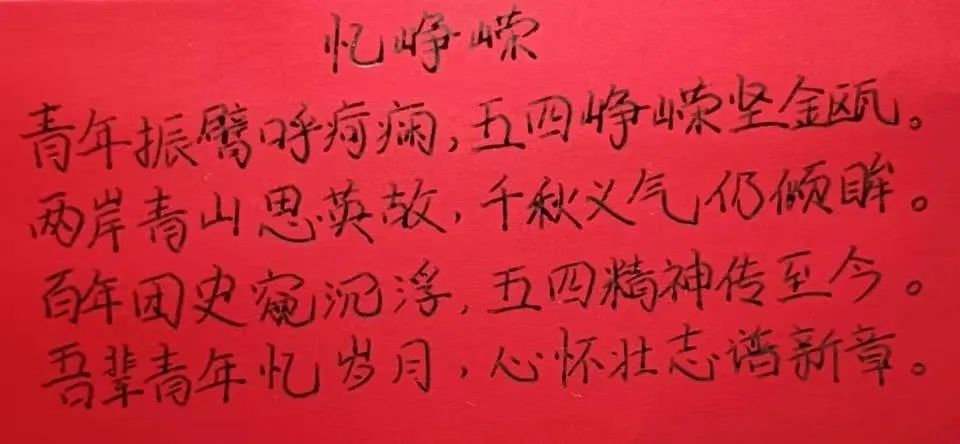 忆峥嵘
青年振臂呼疴瘸，五四峥嵘坚金瓯。
两岸青山思英故，千秋义气仍倾眸。
百年团史窥沉浮，五四精神传至今。
吾辈青年忆岁月，心怀壮志谱新章。